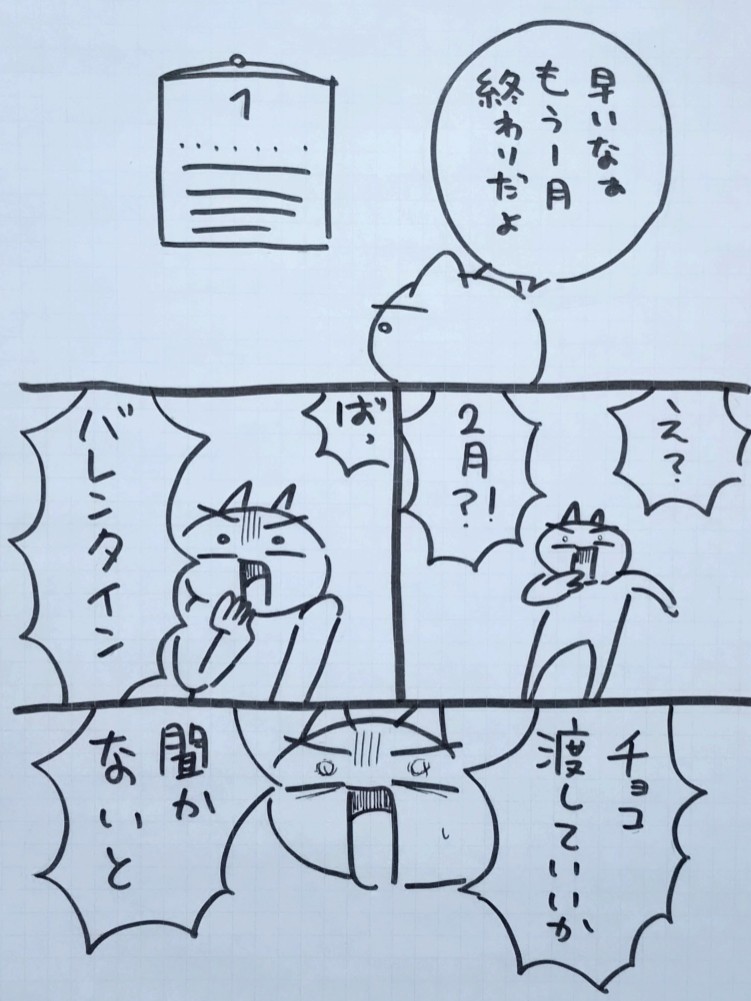 早いなぁ
もう1月
終わりだよ
1
え?
2月?!
ばっ
バレンタイン
チョコ
渡していいか
聞か
ないと